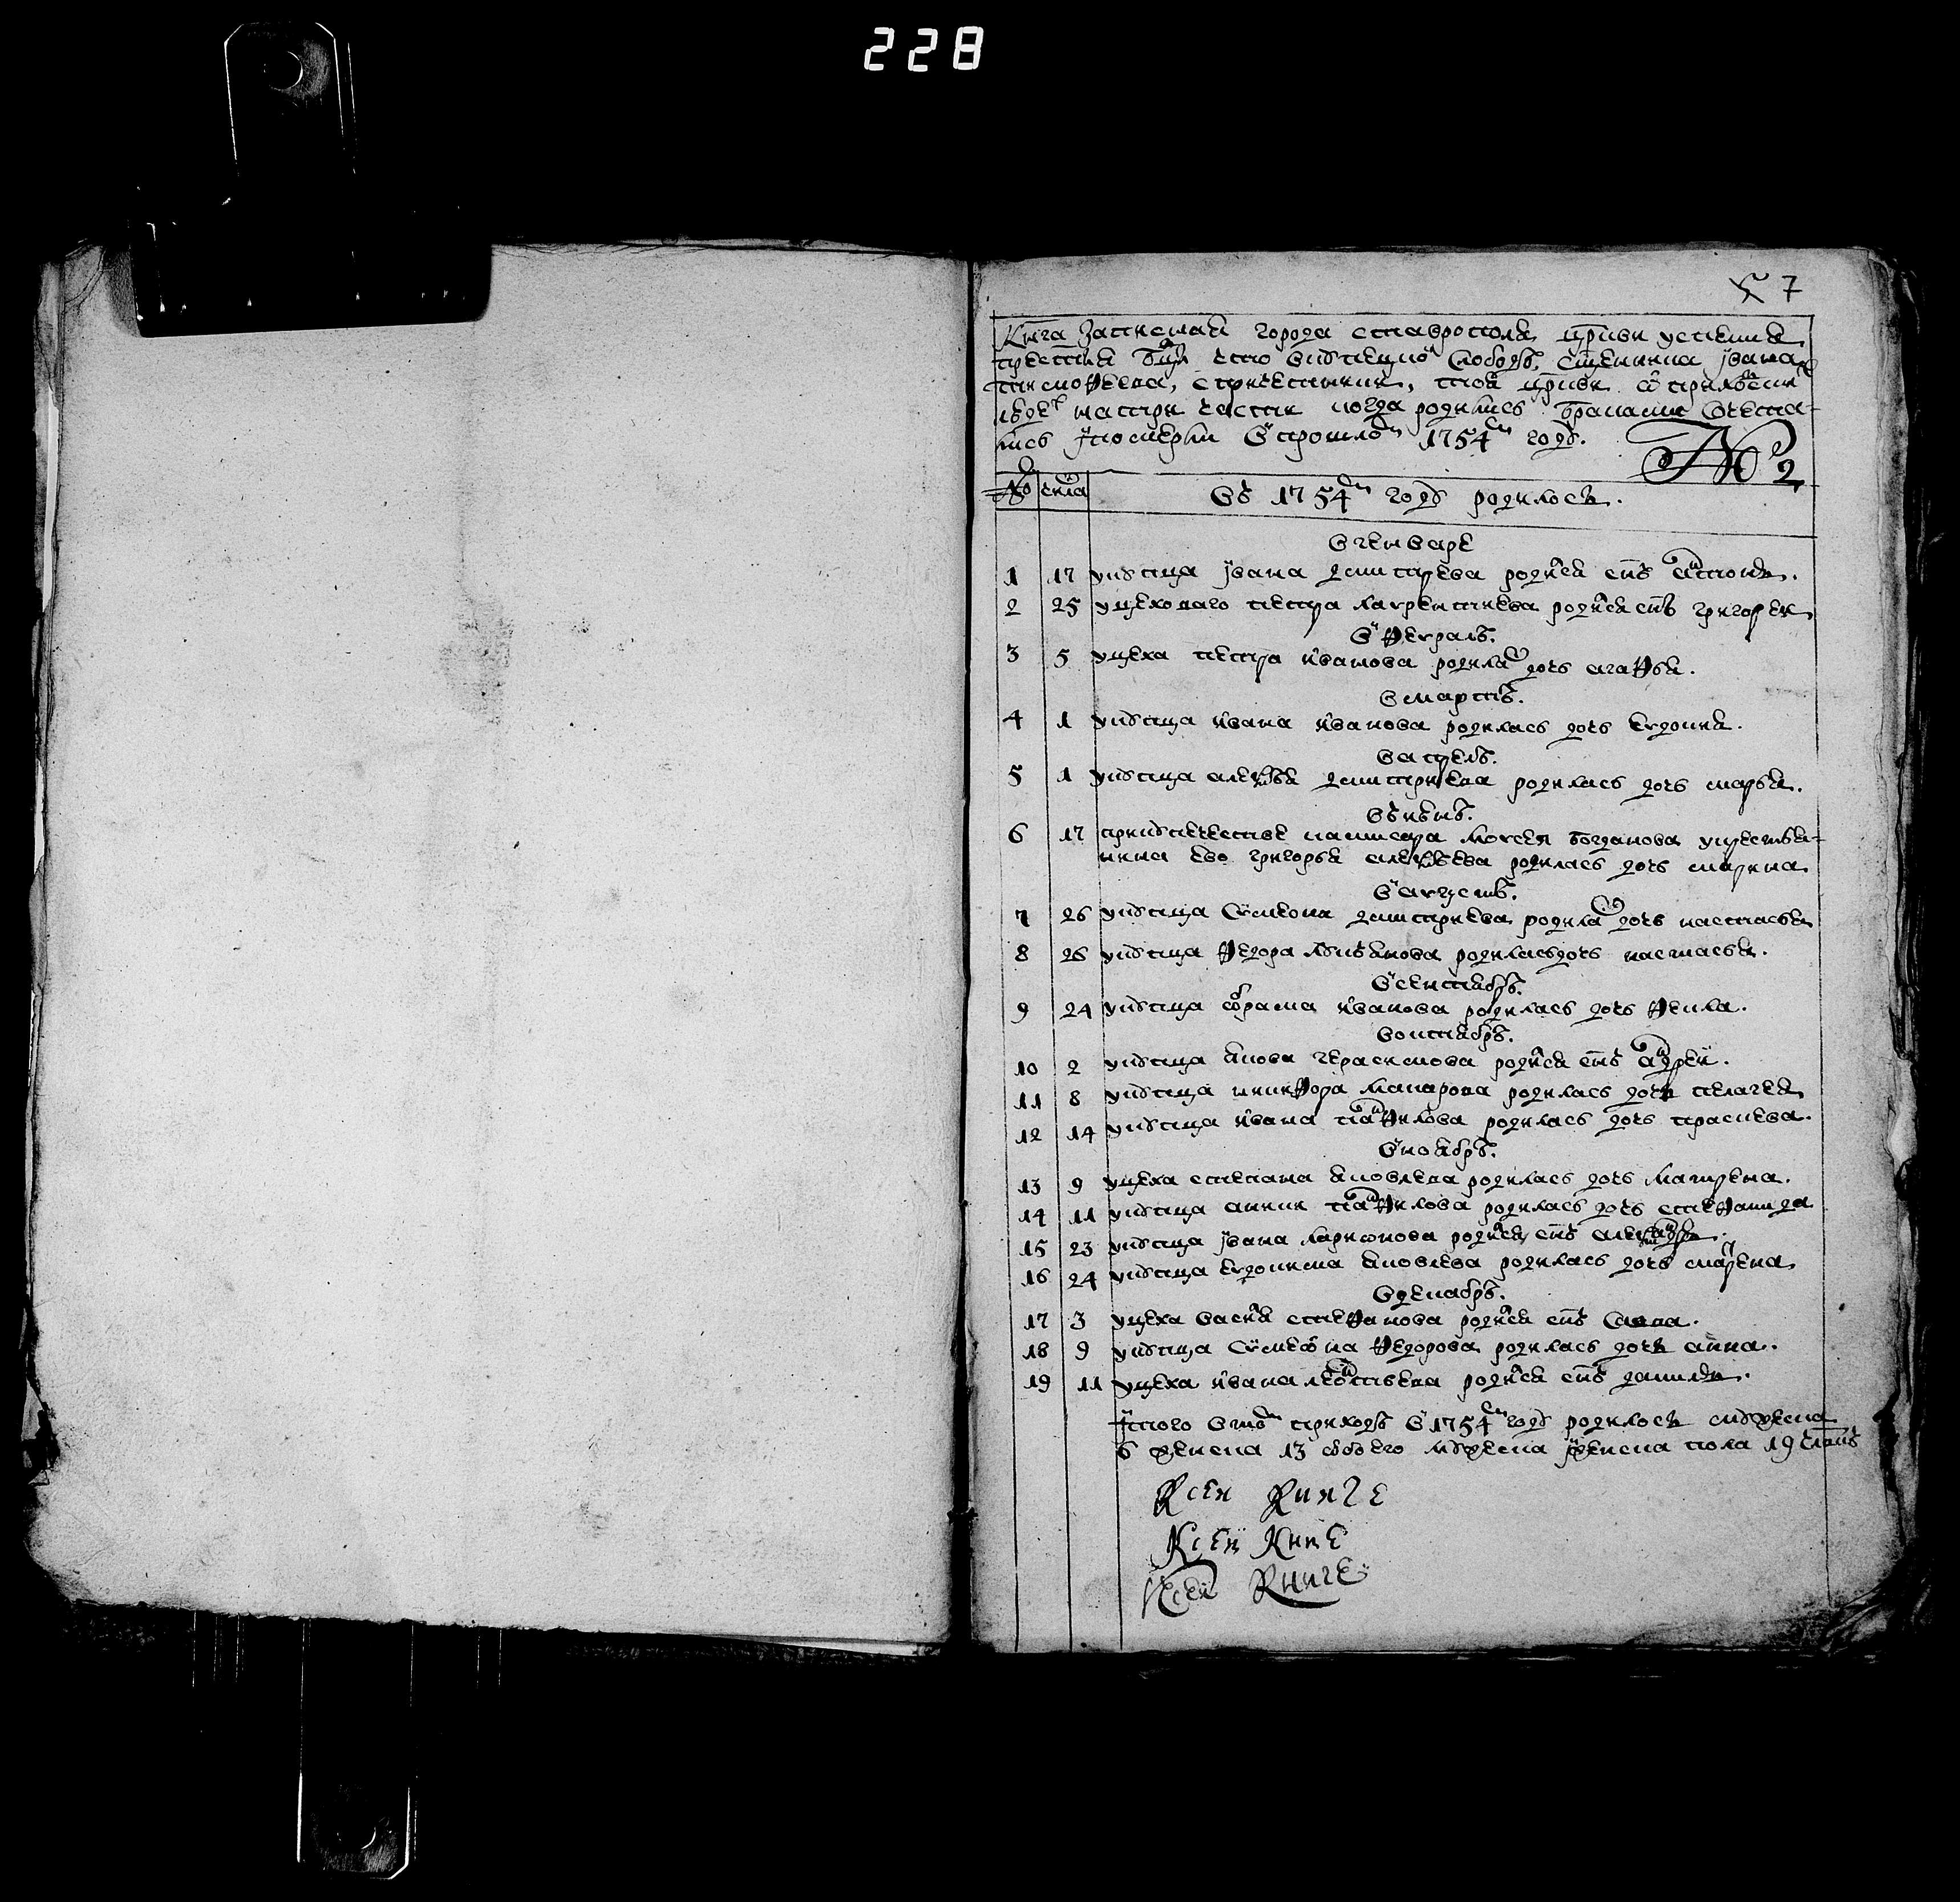 228
7
Книга записная города ставрополя цркви успения
пресвтыя бцы что вкупецкой слободе, сщенника јвана
тимофеева, спричетники, тоя цркви о прилучив
людех натри части когда родились бракамие сочета
лись јпомерли впрошлом 1754м году.
№ 2
№ числа Въ 1754м году родилось.
Вгенваре
1 17 укупца јвана дмитрева родился снъ антонъ.
2 25 уцеховаго петра лаврентиева родился снъ григорей
Вфеврале.
3 5 уцеха петра иванова родилас дочь агафья.
Вмарте.
4 1 укупца ивана иванова родилась дочь евдокия.
Вапреле.
5 1 укупца алексея дмитриева родилась дочь марья.
Виюне.
6 17 прикупечестве канцеляра моисея богданова укрестья
нина ево григорья алексеева родилась дочь марина
Вавгусте.
7 26 укупца симеона дмитриева родилас дочь настасья
8 26 укупца федора лукьянова родилась дочь настасья.
Всентябре.
9 24 укупца абрама иванова родилась дочь фекла.
Воктябре.
10 2 укупца якова герасимова родился снъ андрей.
11 8 укупца никифора макарова родилась дочь пелагея
12 14 укупца ивана панфилова родилась дочь прасковья.
Вноябре.
13 9 уцеха степана яковлева родилась дочь матрена.
14 11 укупца аники панфилова родилась дочь стефанида
15 23 укупца јвана ларионова родился снъ александръ.
16 24 укупца евдокима яковлева родилась дочь марфена
Вдекабре.
17 3 уцеха василья стефанова родился снъ савва.
18 9 укупца симеона федорова родилась дочь анна.
19 11 уцеха ивана леонтьева родился снъ данила.
јтого втом приходе в1754м году родилось мужеска
6 женска 13 обоего мужеска јженска пола 19 члвкъ
Ксеи Книге
Ксеи Книге
Ксеи Книге